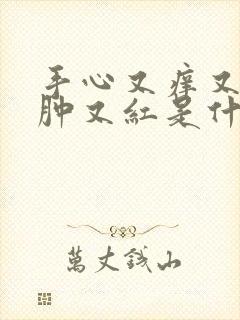 手心又痒又
肿又红是什
萬丈錢山